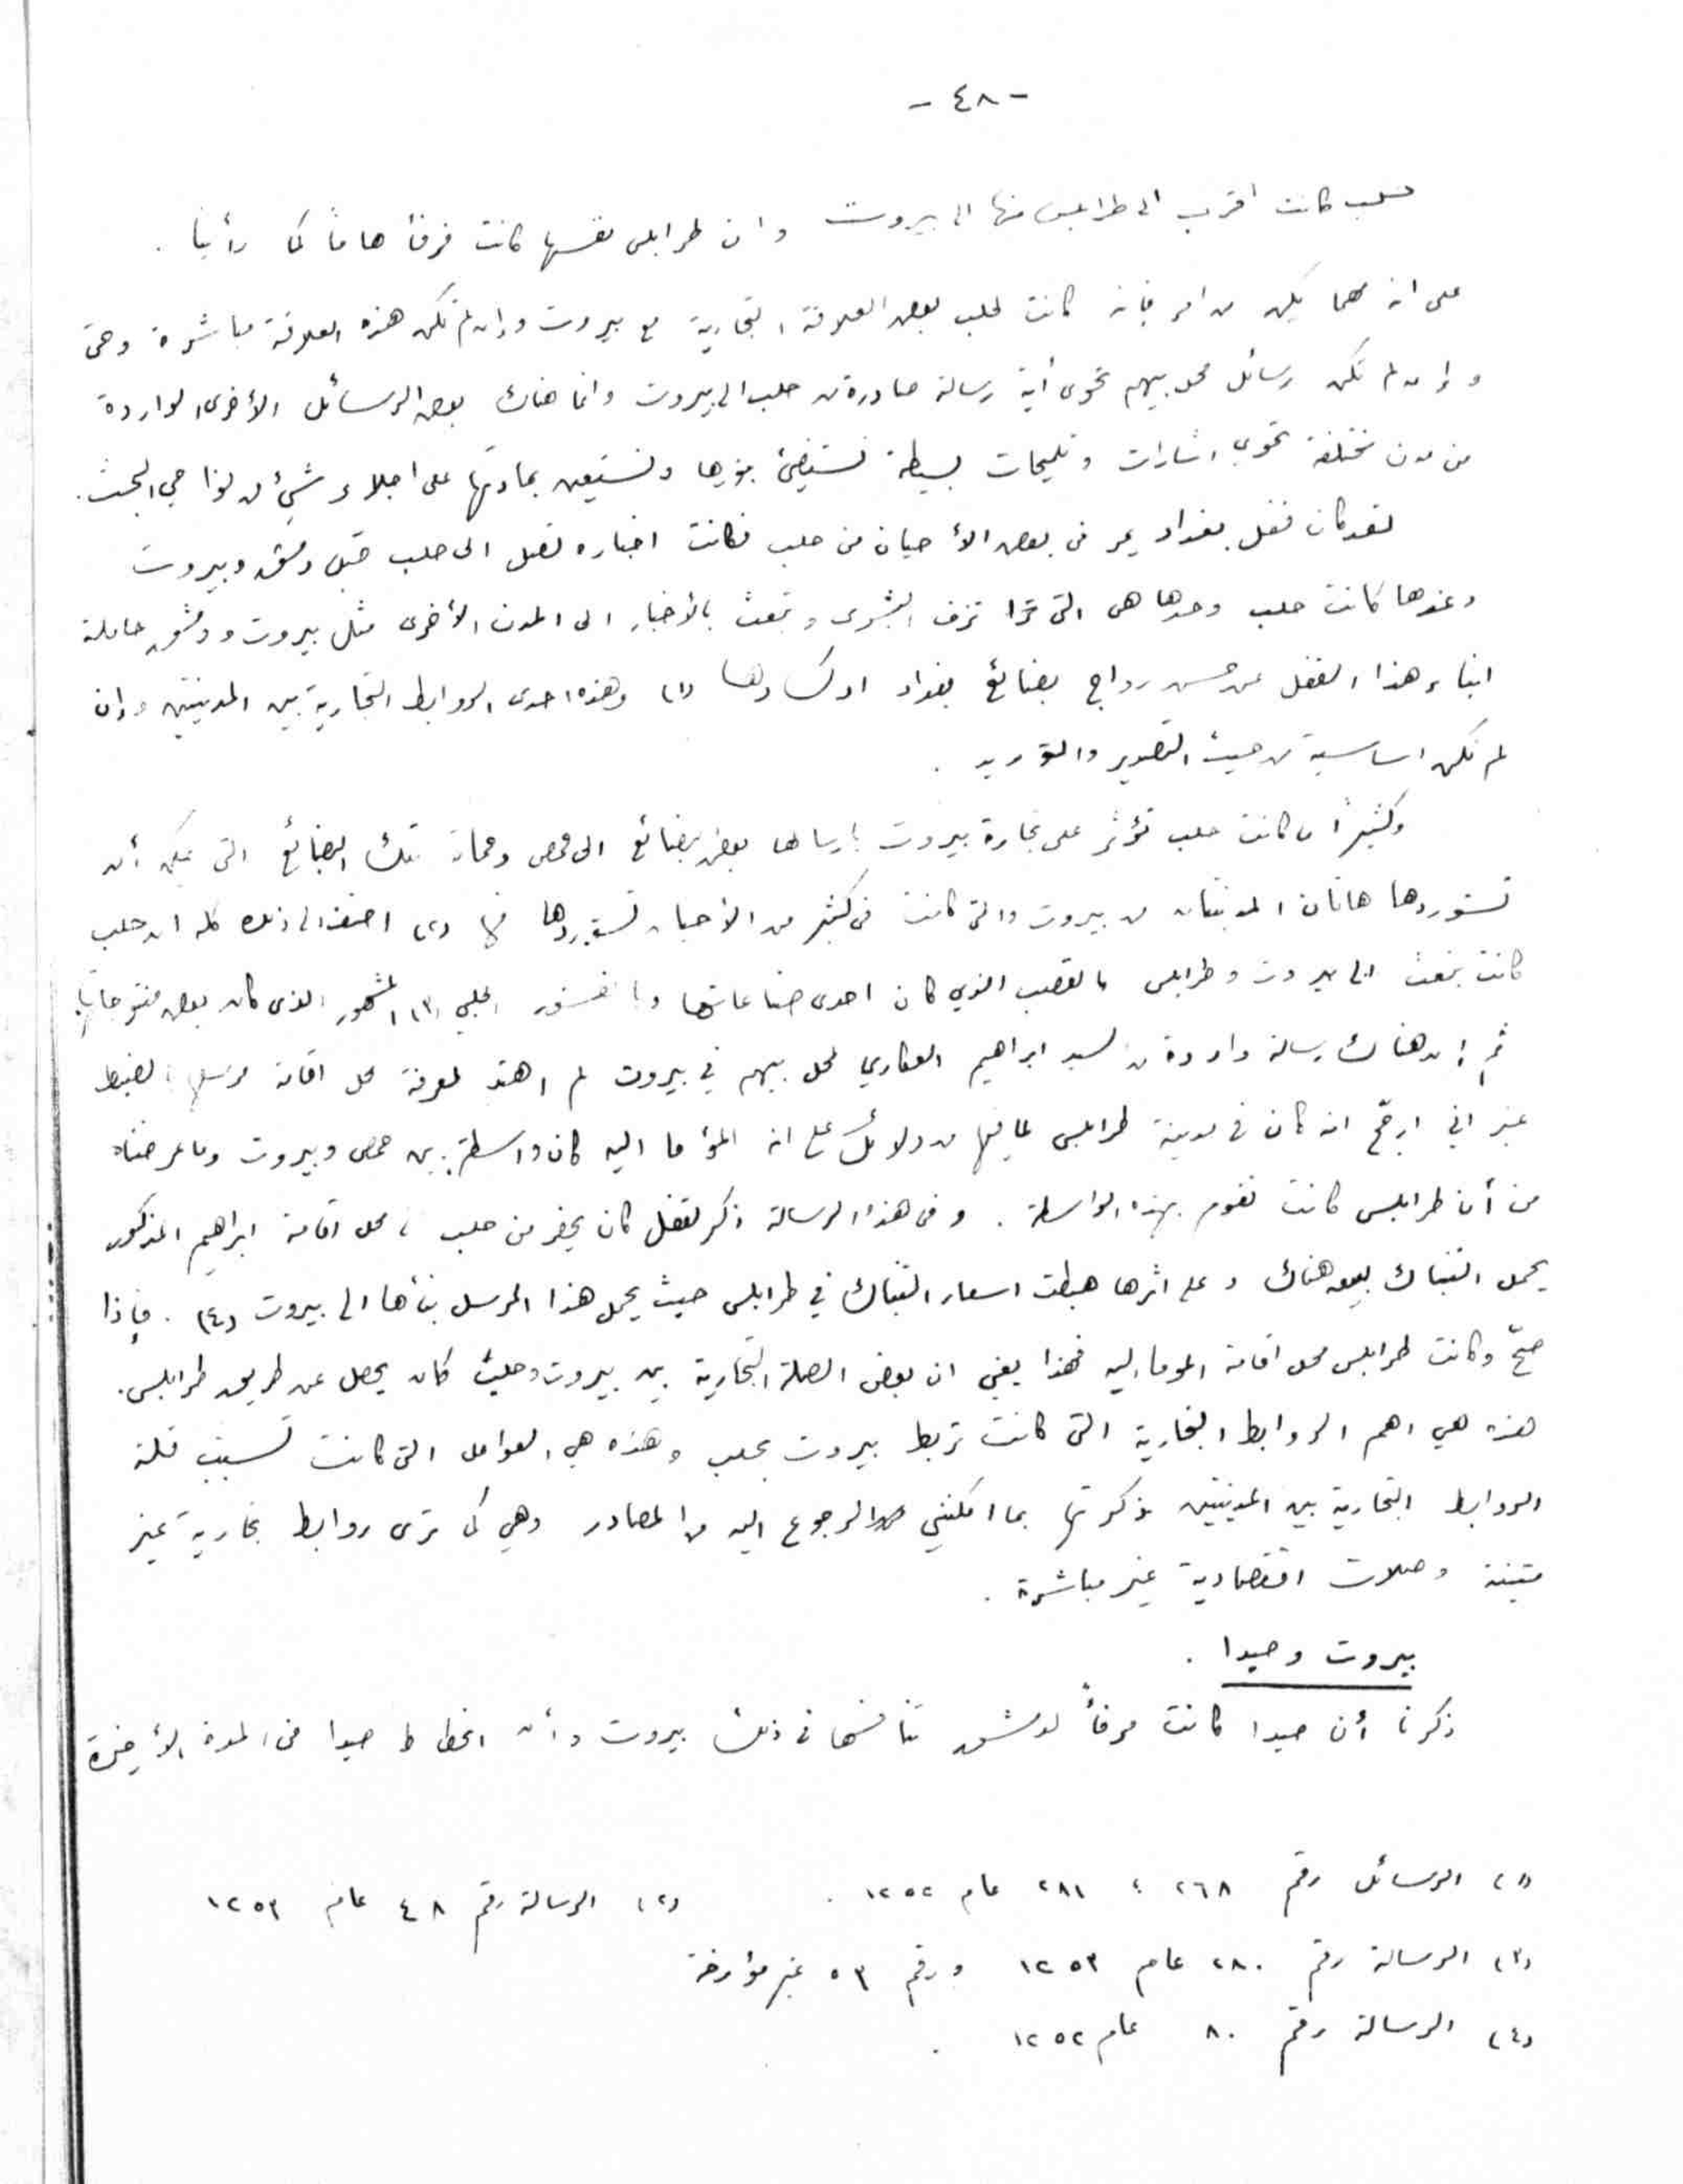 - ٤٨ -
حلب كانت اقرب الى طرابلس منها الى بيروت وان طرابلس نفسها كانت مرفأ هاماً كما رأينا .
على انه مهما يكن من امر فإنه كانت لحلب بعض العلاقة التجارية مع بيروت وإن لم تكن هذه العلاقة مباشرة وحتى
وإن لم تكن رسائل محل بيهم تحوى أية رسالة صادرة من حلب الى بيروت وانما هناك بعض الرسائل الأخرى الواردة
من مدن مختلفة تحوي اشارات وتلميحات بسيطة نستضئ بنورها ونستعين بمادتها على اجلاء شيء من نواحي البحث .
لقد كان قفل بغداد يمر في بعض الأحيان من حلب فكانت اخباره تصل الى حلب قبل دمشق وبيروت
وعندها كانت حلب وحدها هى التى تزف البشرى وتبعث بالأخبار الى المدن الأخرى مثل بيروت ودمشق حاملة
انباء هذا القفل عن حسن رواج بضائع بغداد او كسادها (١) وهذه احدى الروابط التجارية بين المدينتين وإن
لم تكن اساسية من حيث التصدير والتوريد .
وكثيراً ما كانت حلب تؤثر على تجارة بيروت بارسالها بعض بضائع الى حمص وحماة تلك البضائع التى يمكن أن
تستوردها هاتان المدينتان من بيروت والتى كانت فى كثير من الأحيان تستوردها منها (٢) اضف الى ذلك كله ان حلب
كانت تبعث الى بيروت وطرابلس بالقصب الذي كان احدى صناعاتها الحلبي (٣) المشهور الذى كان بعض منتوجاتها .
ثم إن هناك رسالة واردة من السيد ابراهيم العكاري لمحل بيهم في بيروت لم اهتد لمعرفة محل اقامة مرسلها بالضبط
غير اني ارجّح انه كان فى مدينة طرابلس لما فيها من دلائل على انه المؤما اليه كان واسطة بين حمص وبيروت وما عرضناه
من أن طرابلس كانت تقوم بهذه الواسطة . وفى هذه الرسالة ذكر لقفل كان يحضر من حلب الى محل اقامة ابراهيم المذكور
يحمل التنباك لبيعه هناك وعلى اثرها هبطت اسعار التنباك في طرابلس حيث يحمل هذا المرسل نبأها الى بيروت (٤) . فإذا
صحّ وكانت طرابلس محل اقامة الموما اليه فهذا يعني ان بعض الصلة التجارية بين بيروت وحلب كان يحصل عن طريق طرابلس .
هذه هي اهم الروابط التجارية التى كانت تربط بيروت بحلب وهذه هي العوامل التى كانت تسبب قلة
الروابط التجارية بين المدينتين ذكرتها بما امكنني الرجوع اليه من المصادر وهي كما ترى روابط تجارية غير
متينة وصلات اقتصادية غير مباشرة .
بيروت وصيدا .
ذكرنا أن صيدا كانت مرفأً لدمشق تنافسها فى ذلك بيروت وأن انحطاط صيدا فى المدة الأخيرة
(١) الرسائل رقم ٢٦٨ ؛ ٢٨١ عام ١٢٥٢ . (٢) الرسالة رقم ٤٨ عام ١٢٥٣
(٣) الرسالة رقم ٢٨٠ عام ١٢٥٣ ورقم ٥٣ غير مؤرخة
(٤) الرسالة رقم ٨٠ عام ١٢٥٢ .